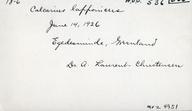 18-6 536
Calcarius lapponicus
June 14, 1926
Egedesminde, Grønland
Dr A. Laurent-Christensen
mcz 9951